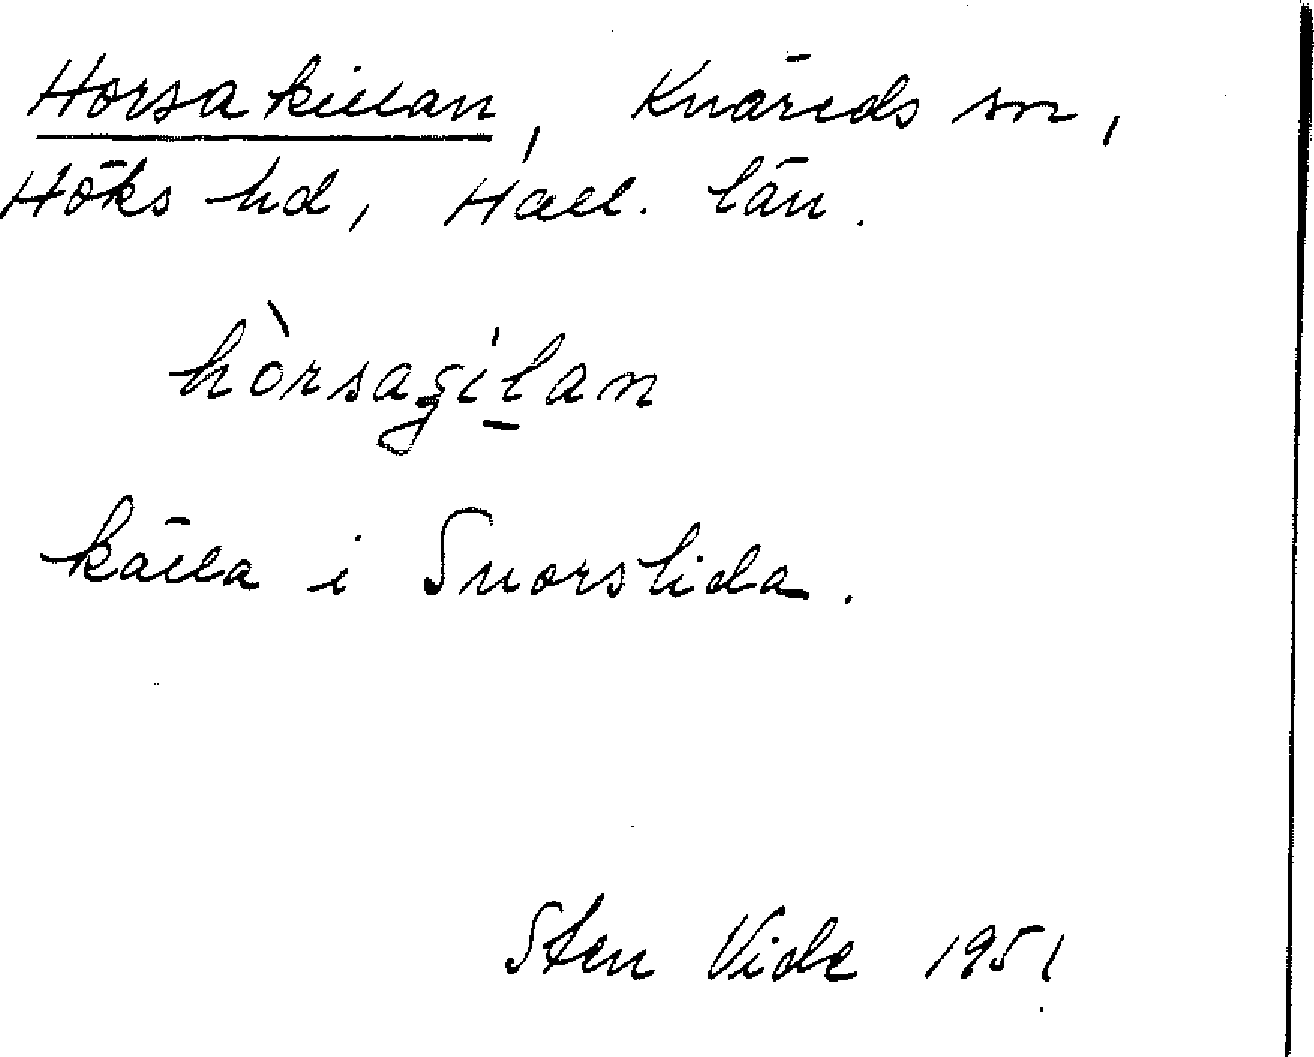 Horsakillan, Knäreds sn,
Höks hd, Hall. län.
hòrsaʒílan
källa i Snorslida.
Sten Vide 1951